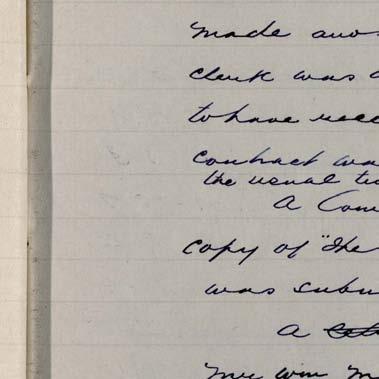 made ano
clerk was
to have rece
contract wa
the usual t
A Com
copy of "The
was subm
A
Mr. Wm. M